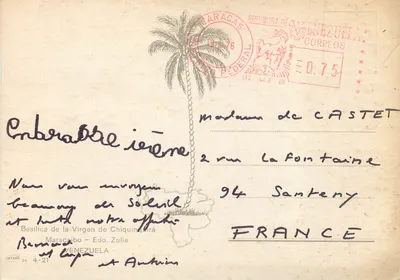 CARACAS
DISTRITO FEDERAL
VENEZUELA
CORREOS
0.75
Madame de CASTET
2 rue La Fontaine
94 Santeny
FRANCE
Nous vous envoyons
beaucoup de Soleil
et toute notre affection
Bernard
et
et Antoine
Basilica de la Virgen de Chiquinquirá
Maracaibo - Edo. Zulia
VENEZUELA